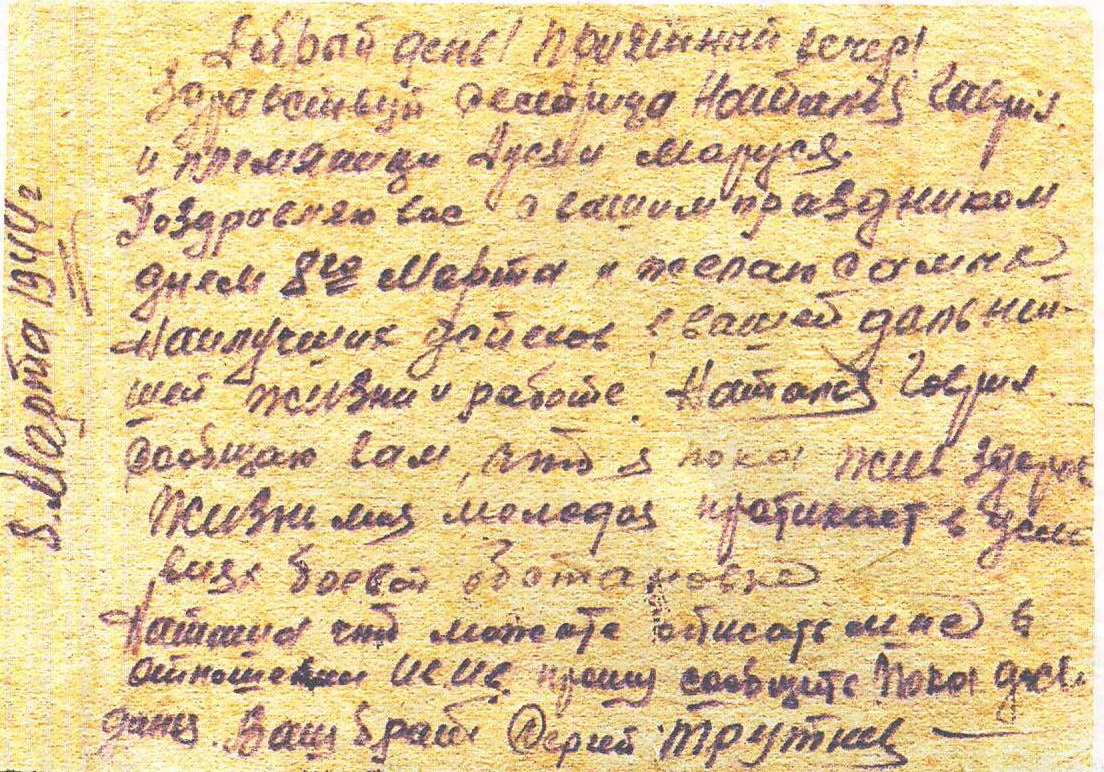 Добрый день! Приятный вечер!
Здравствуй сестрица Наталья Гаврил.
и племяницы Дуся и Маруся.
Поздровляю вас с вашим праздником
днем 8го Марта и желаю самых
наилучших успехов в вашей дальней-
шей жизни и работе. Наталья Гаврил
сообщаю вам, что я пока жив здоров
Жизнь моя молодая протикает в усло
виях боевой обстановке
Наташа что можете описать мне в
отношении прошу сообщите Пока досви
дания. Ваш брат Сергей Трутнев
8. Марта 1944 г